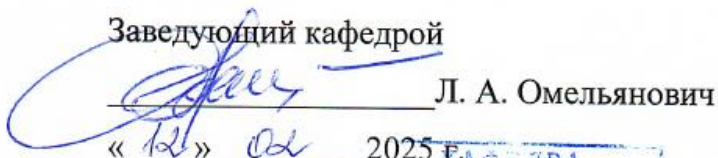 Заведующий кафедрой
Л. А. Омельянович
« 12 » 02 2025 г.